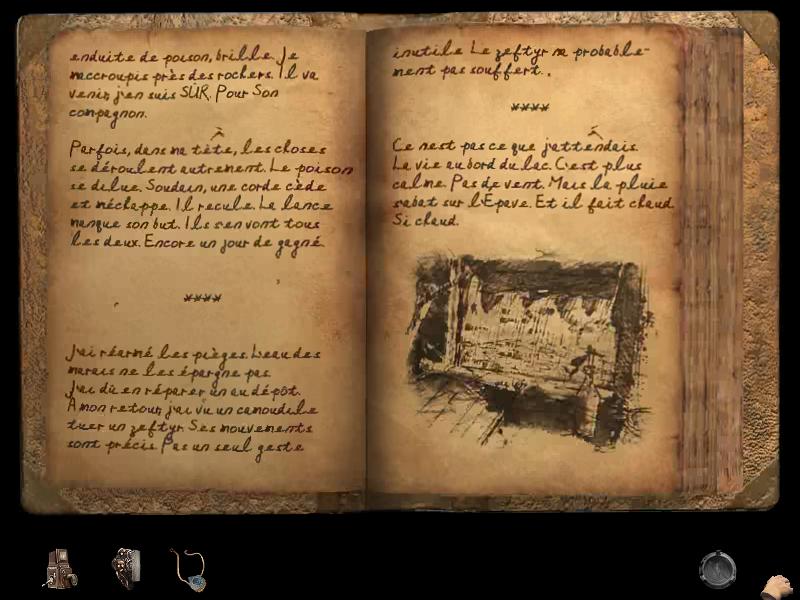 enduite de poison, brille. Je
m'accroupis près des rochers. Il va
venir, j'en suis SÛR. Pour Son
compagnon.
Parfois, dans ma tête, les choses
se déroulent autrement. Le poison
se dilue. Soudain, une corde cède
et m'échappe. Il recule. La lance
manque son but. Ils s'en vont tous
les deux. Encore un jour de gagné.
****
J'ai réarmé les pièges. L'eau des
marais ne les épargne pas.
J'ai dû en réparer un au dépôt.
A mon retour, j'ai vu un camoudile
tuer un zeftyr. Ses mouvements
sont précis. Pas un seul geste
inutile. Le zeftyr n'a probable-
ment pas souffert..
****
Ce n'est pas ce que j'attendais.
La vie au bord du lac. C'est plus
calme. Pas de vent. Mais la pluie
s'abat sur l'Epave. Et il fait chaud.
Si chaud.